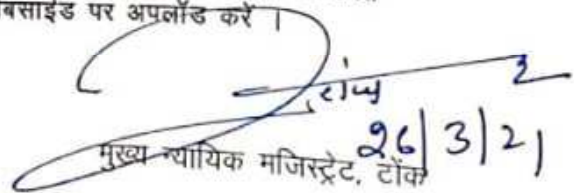 बसाईड पर अपलॉड करें ।
26/3/21
मुख्य न्यायिक मजिस्ट्रेट, टोंक